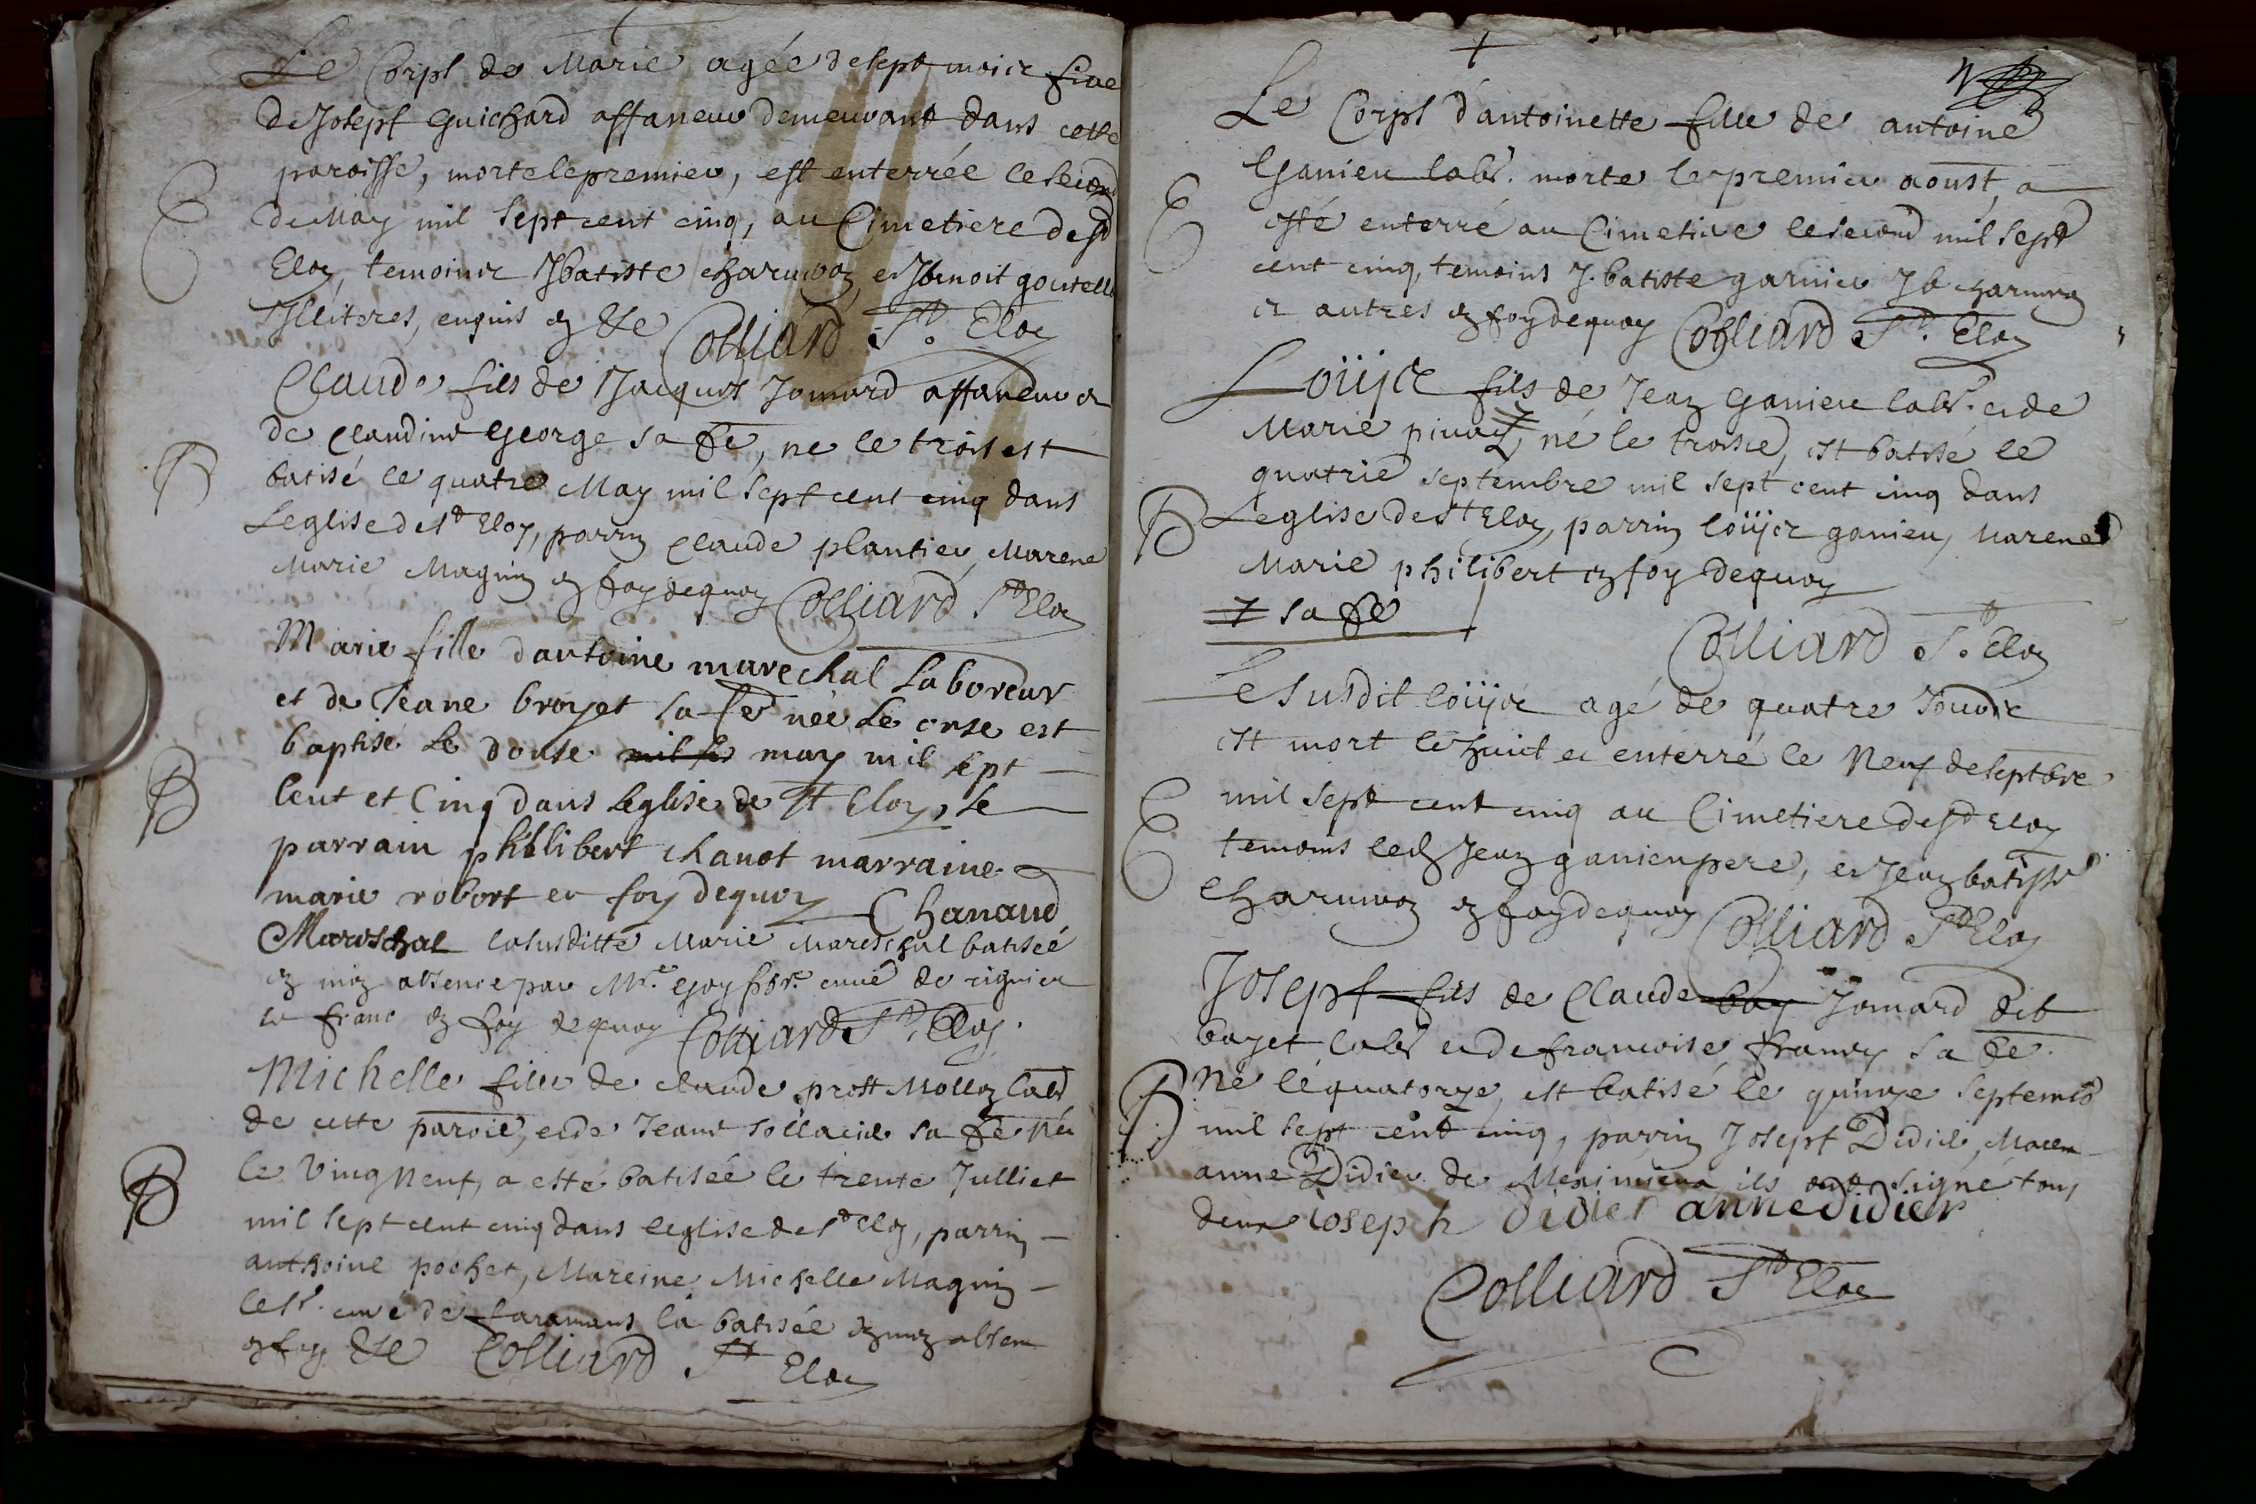 Le Corps de Marie agée de sept moisc fille
de Joseph Guichard affaneur demeurant dans cette
paroisse, morte le premier, est enterrée le second
de May mil sept cent cinq, au Cimetiere de St
Eloy, temoinc Jbatiste charuvoy, et Jbenoit goutelle
Illiteres, enquis en &c Colliard St. Eloy
Claude fils de Jacques Jomard affaneur et
de Claudine George sa fe, ne le trois est
batisé le quatre May mil sept cent cinq dans
Leglise de St Eloy, parrin Claude plantier, Marene
Marie Magnin en foy de quoy Colliard St Eloy
Marie fille dantoine marechal Laboreur
et de Jeane broyet sa fe née Le onse est
baptisé Le douse mil se may mil sept
Cent et Cinq dans Leglise de St Eloy, Le
parrain philibert chanot marraine
marie robert en foy de quoy Chanaud
Mareschal lasusditte Marie Mareschal batisée
en mon absence par Mre. Goy pbre. curé de rignieu
le franc en foy de quoy Colliard St. Eloy.
Michelle fille de claude prost Molloy labr
de cette paroie, et de Jeane sa fe née
le Vingneuf, a esté batisée le trente Julliet
mil sept cent cinq dans leglise de St Eloy, parrin
anthoine pochet, Mareine Michelle Magnin
le Sr. curé de faramans la batisée en mon absen
en foy &c Colliard St Eloy
Le Corps d'antoinette fille de antoine
Ganieu labr. morte le premier aoust, a
esté enterré au Cimetiere le second mil sept
cent cinq, temoins J. batiste garnier Jb charuvoy
et autres en foy de quoy Colliard St. Eloy
Loüijc fils de Jean Ganieu labr. et de
Marie pivay, ⨍ né le troisie, est batisé le
quatrie septembre mil sept cent cinq dans
Leglise de St Eloy, parrin loüijc ganieu, Marene
Marie philibert en foy de quoy
⨍ sa fe
Colliard St. Eloy
Le Susdit loüijc agé de quatre Jourc
est mort le huict et enterré le Neuf de septbre
mil sept cent cinq au Cimetiere de St Eloy
temoins led Jean ganieu pere, et Jean batiste
charuvoy en foy de quoy Colliard St Eloy
Joseph fils de Claude bay Jomard dit
bayet labr et de francoise francy sa fe.
Né le quatorze, est batisé le quinze septembre
mil sept cent cinq, parrin Joseph Didier, Maren
anne Didier de Meximieux ils ont signé tous
deux Joseph didier anne didier
Colliard St Eloy